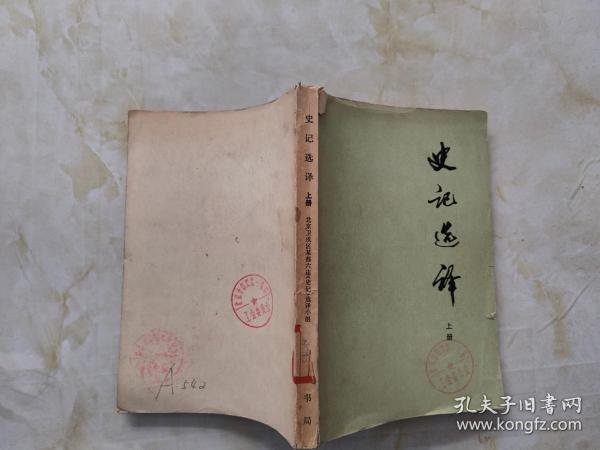 史记选译
上册
史记选译 上册 北京卫戍区某部六连《史记》选译小组
书局
A-542
孔夫子旧书网
www.kongfz.com